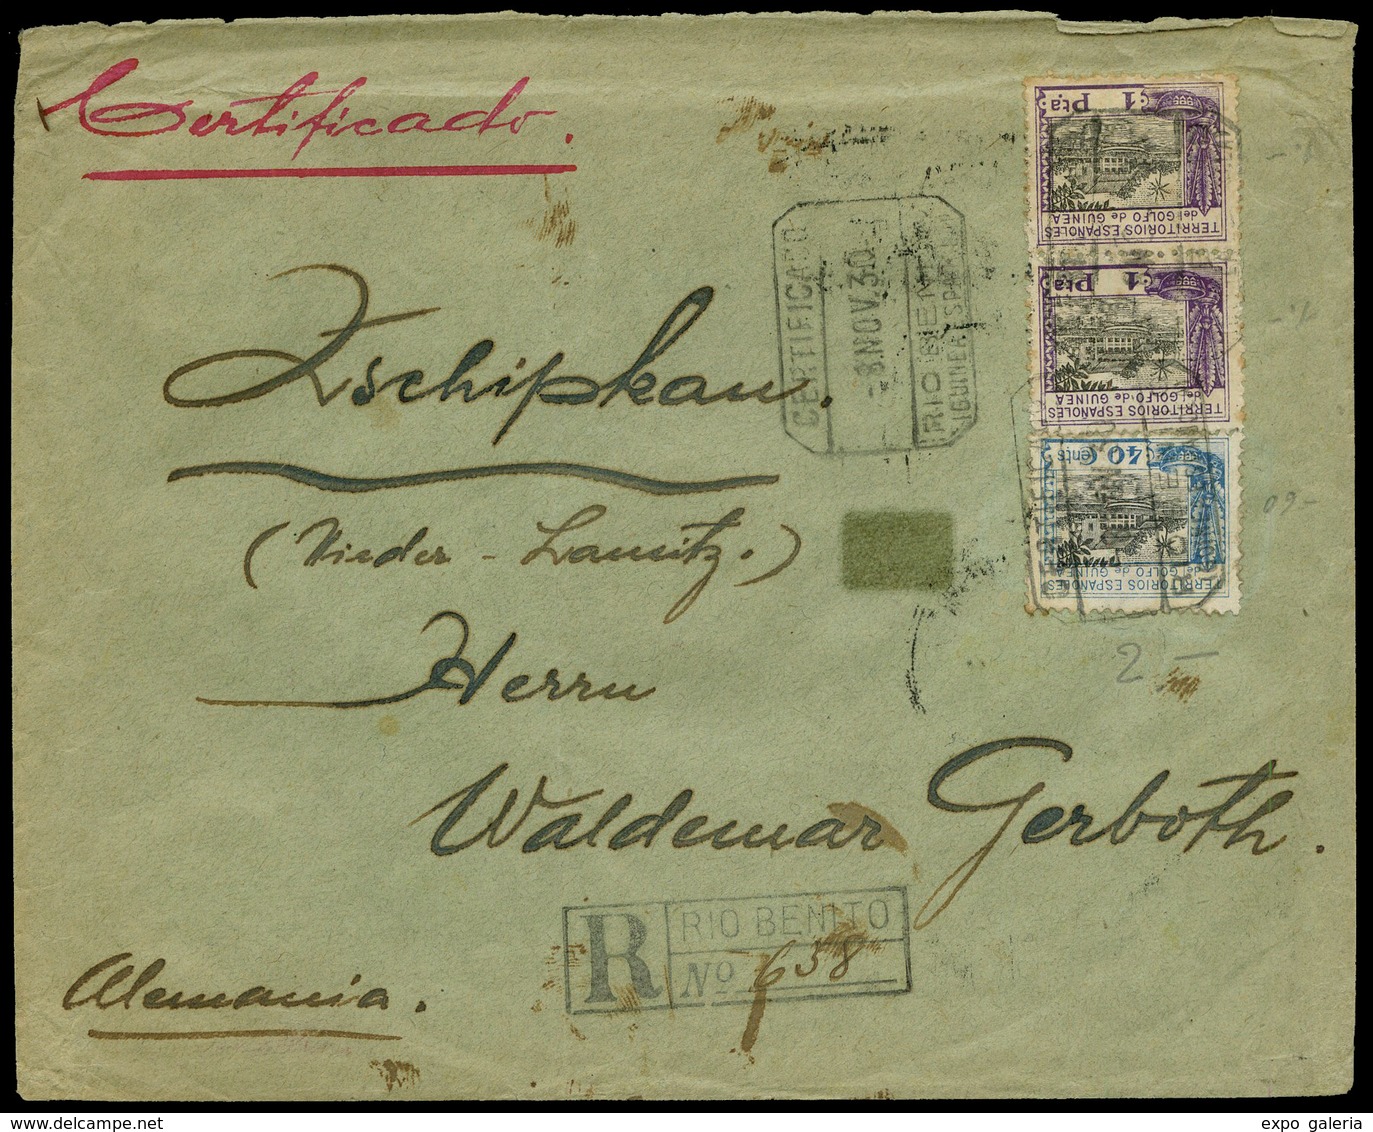 Certificado.
1 Pta
TERRITORIOS ESPAÑOLES
del GOLFO de GUINEA
CERTIFICADO
-8.NOV.30
RIO BENITO
1 Pta
TERRITORIOS ESPAÑOLES
del GOLFO de GUINEA
40 Cents
TERRITORIOS ESPAÑOLES
del GOLFO de GUINEA
Zschipkau.
(Nieder-Lausitz.)
2 -
Herrn
Waldemar Gerboth.
R RIO BENITO
Nº 658
Alemania.
expo galeria